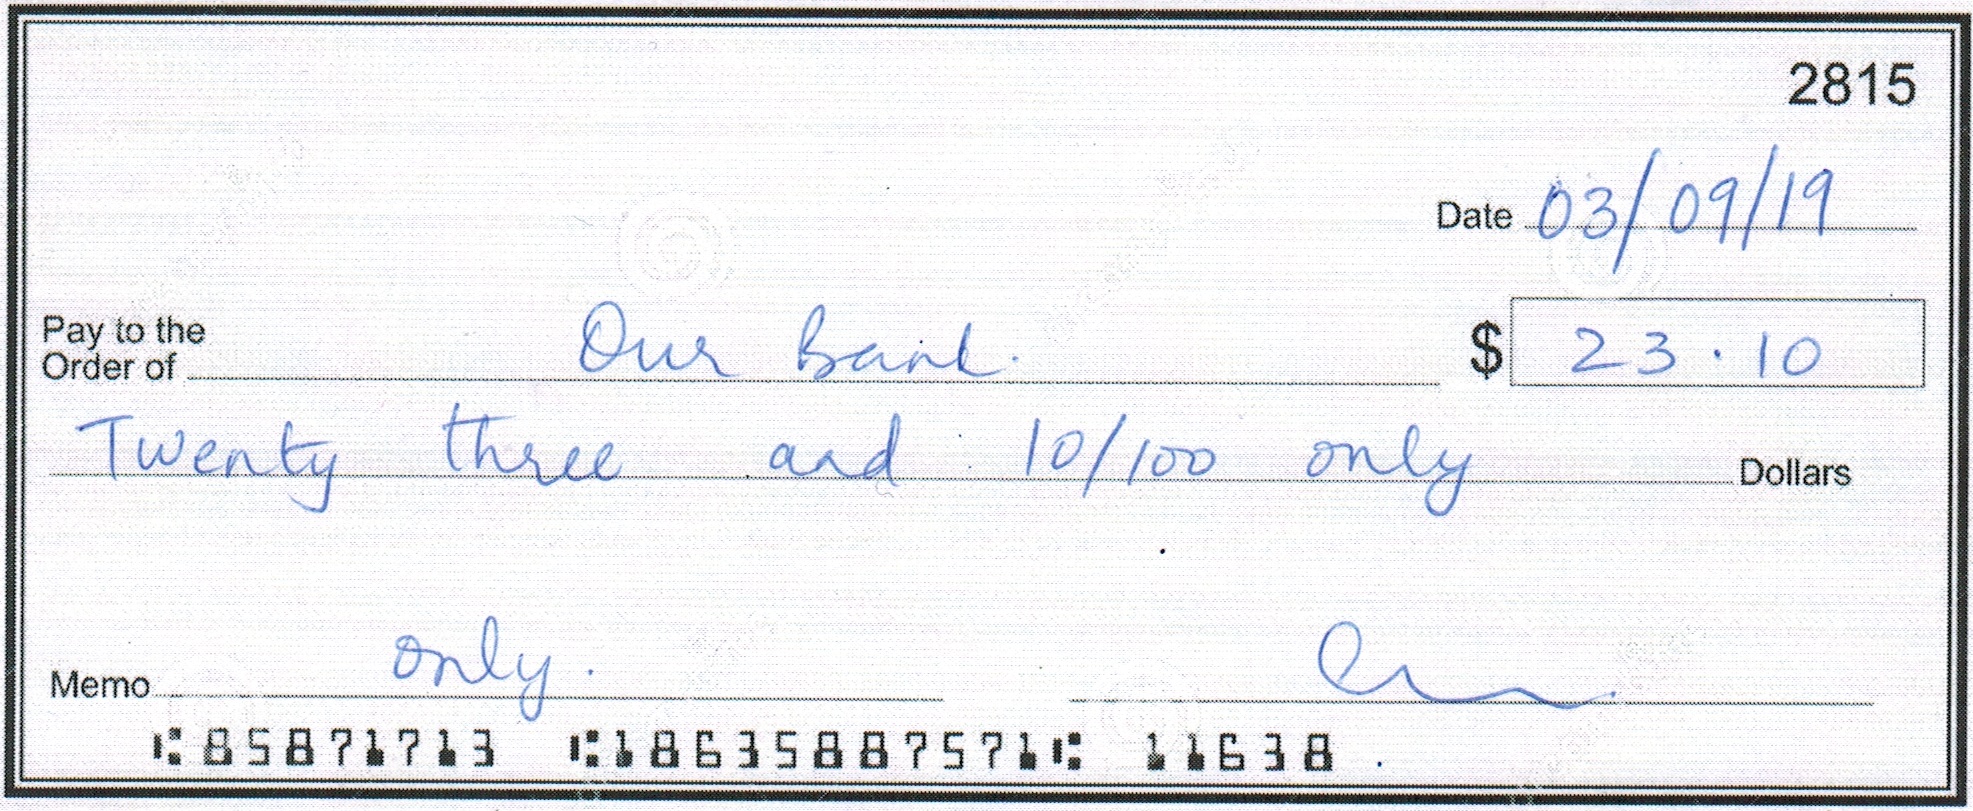 2815
Date 03/09/19
Pay to the
Order of Our Bank. $ 23.10
Twenty three and 10/100 only Dollars
Memo only.
⑆85871713 ⑆18635887571⑆ 11638